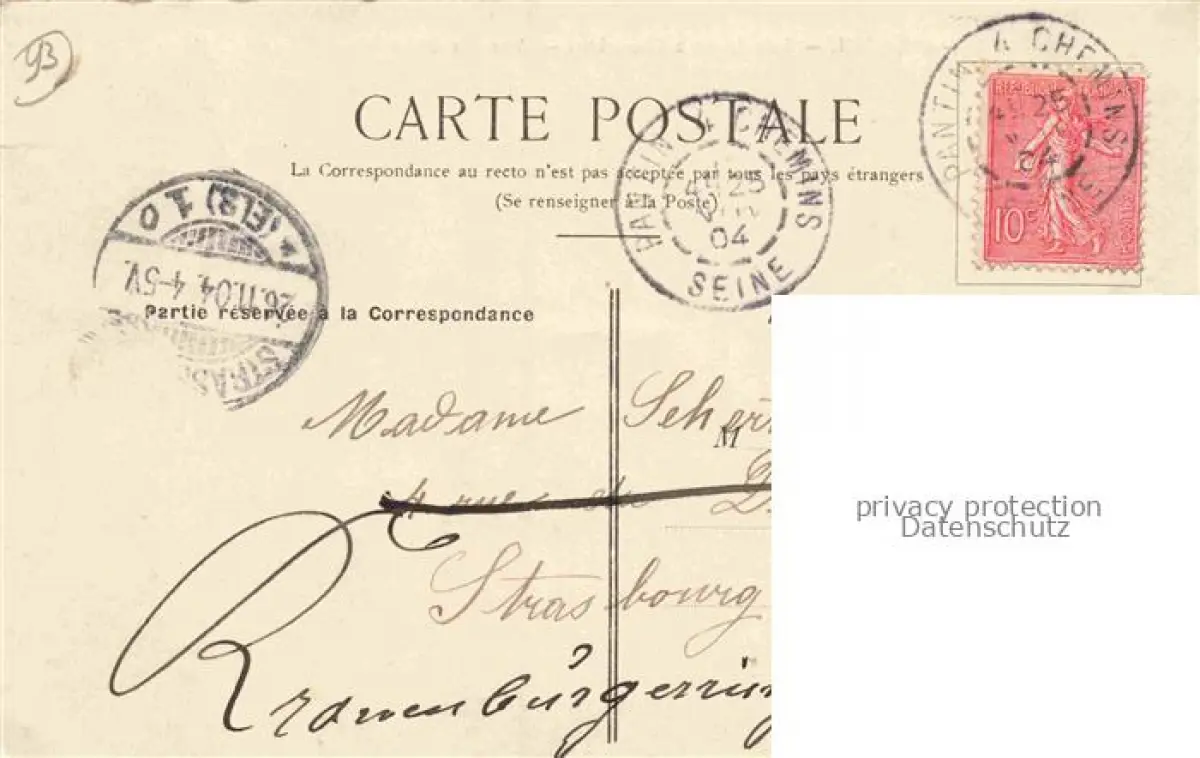 93
CARTE POSTALE
La Correspondance au recto n'est pas acceptée par tous les pays étrangers
(Se renseigner à la Poste)
PANTIN 4 CHEMINS
25
04
SEINE
PANTIN 4 CHEMINS
25
04
RÉPUBLIQUE FRANÇAISE
10c
STRAS (ELS) 10
26.11.04. 4-5V.
Partie réservée à la Correspondance
Madame
M
4 rue
Strasbourg
privacy protection
Datenschutz